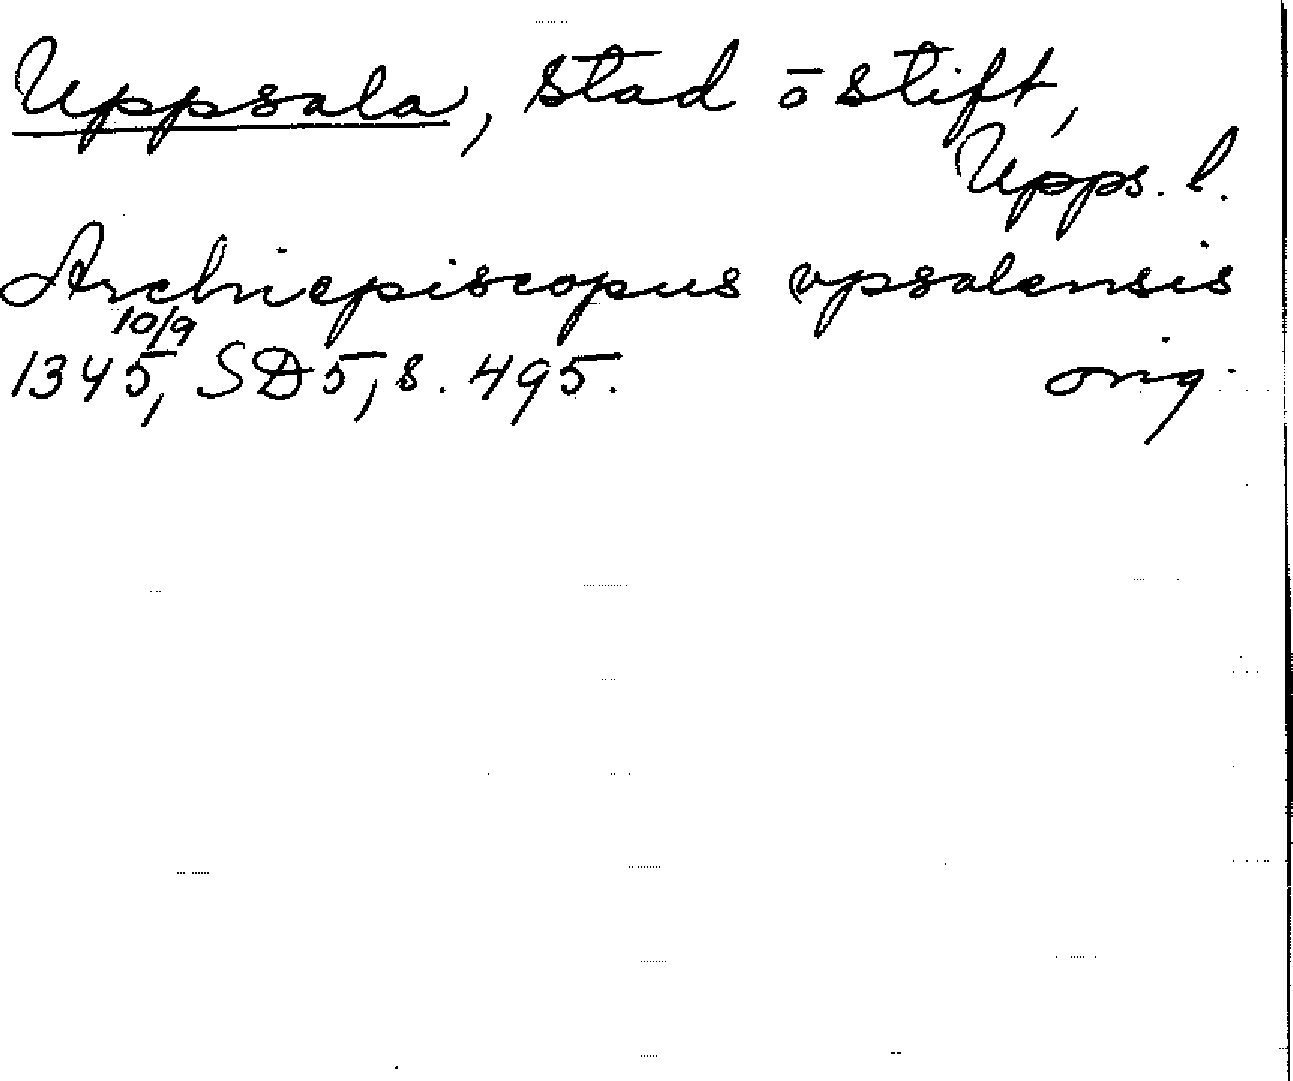 Uppsala, stad o stift,
Upps. l.
Archiepiscopus vpsalensis
10/9
1345, SD5, s. 495. orig.